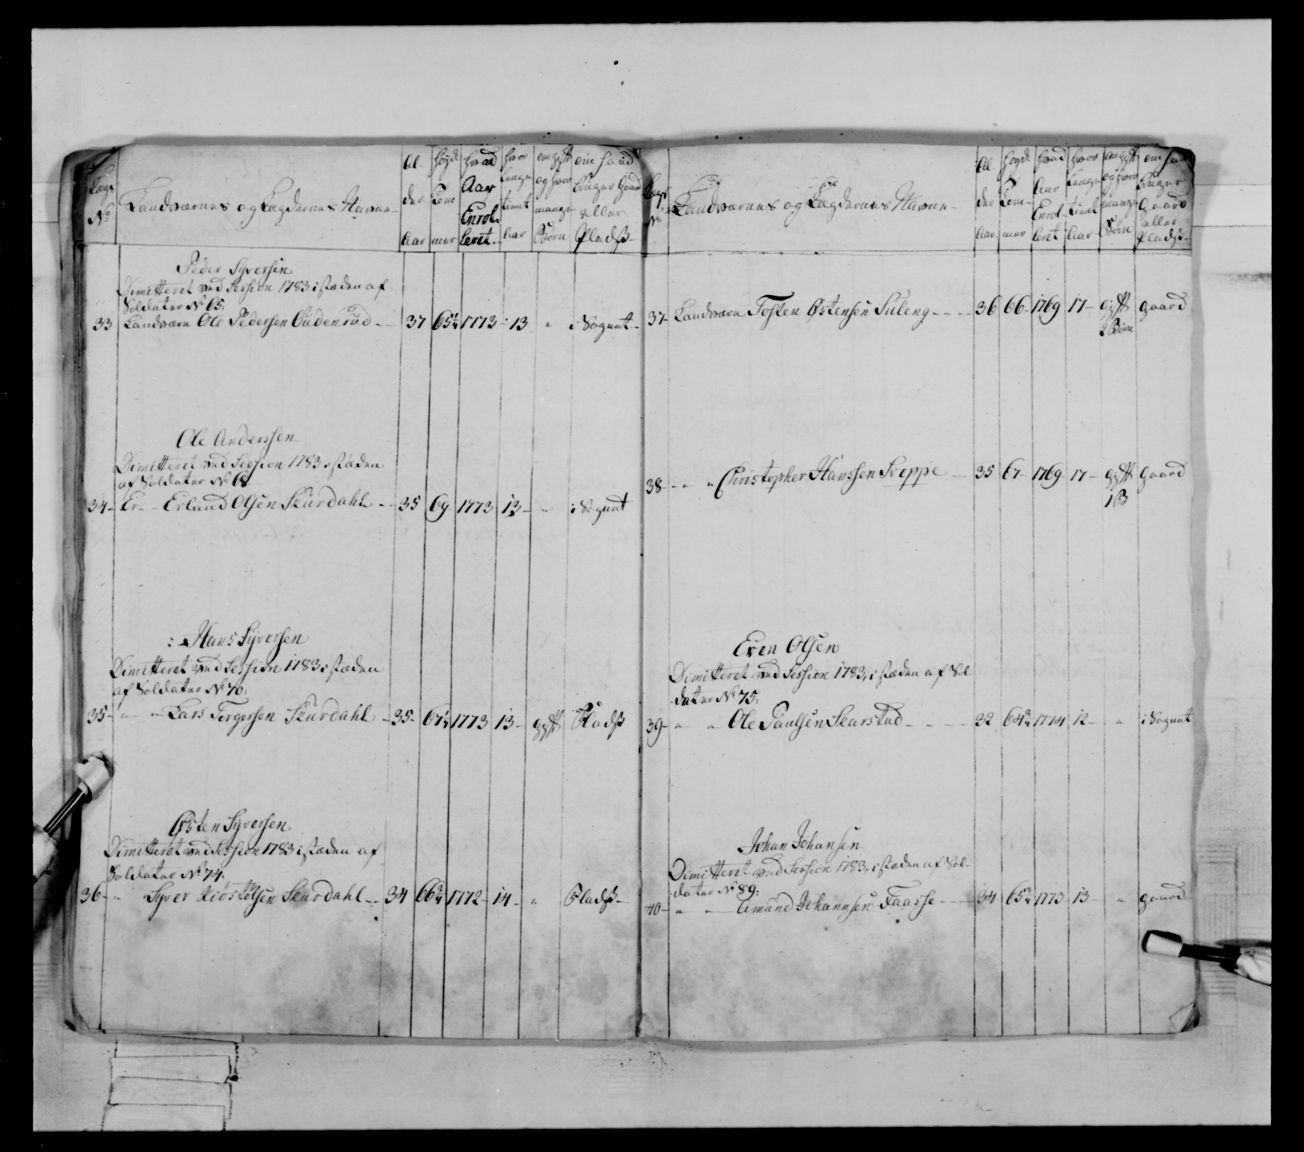 Lægs No
Landværnes og Lægdernes Navne
Al der Aar
høyde Tom mer
hvad Aar Enrol leret
hvor længe tient Aar
om gift og hvor mange Børn
om hand bruger Gaard eller Pladß
Peder Syversen
Dimitteret ved Session 1783 i stæden af
Soldater No 65.
33 Landværn Ole Pedersen 37 65½ 1773 13 " i Sognet
Ole Andersen
Dimitteret ved Session 1783 i stæden
af Soldater No 68
34 Er Erland Olsen Skurdahl 35 69 1773 13 " i Sognet
Hans Syversen
Dimitteret ved Session 1783 i stæden
af Soldater No 70:
35 " " Lars Torgersen Skurdahl 35 67½ 1773 13 gift Pladß
Østen Syversen
Dimitteret ved Session 1783 i stæden af
Soldater No 74.
36 " Syver Skurdahl 34 66¾ 1772 14 " Pladß
Lægs No
Landværnes og Lægdernes Navne
Al der Aar
høyde Tom mer
hvad Aar Enrol leret
hvor længe tient Aar
om gift og hvor mange Børn
om hand bruger Gaard eller Pladß
37 Landværn Tosten Østensen Suleng 36 66 1769 17 gift gaard
2 Børn
38 " " Christopher Hanssen Sveppe 35 67 1769 17 gift gaard
1 B
Even Olsen
Dimitteret ved Session 1783, i stæden af Sol
dater No 75.
39 " " Ole Paulsen Skarstad 32 64¾ 1774 12 " i Sognet
Johan Johansen
Dimitteret ved Session 1783, i stæden af Sol
dater No 89:
40 " " Amund Johannsen Faasse 34 65¾ 1773 13 " gaard